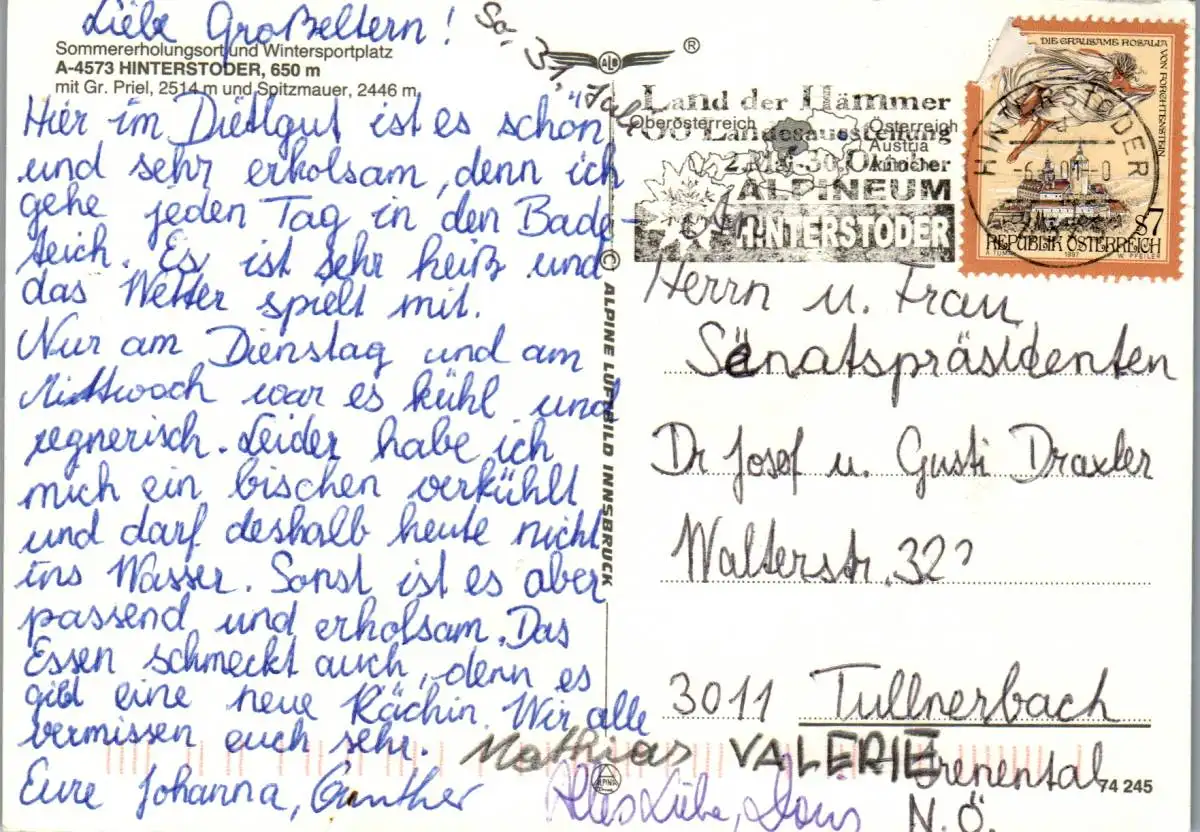 Liebe Großeltern!
So, 31. Juli
Sommererholungsort und Wintersportplatz
A-4573 HINTERSTODER, 650 m
mit Gr. Priel, 2514 m und Spitzmauer, 2446 m
Hier im Dietlgut ist es schön
und sehr erholsam, denn ich
gehe jeden Tag in den Bade-
teich. Es ist sehr heiß und
das Wetter spielt mit.
Nur am Dienstag und am
Mittwoch war es kühl und
regnerisch. Leider habe ich
mich ein bischen verkühlt
und darf deshalb heute nicht
ins Wasser. Sonst ist es aber
passend und erholsam. Das
Essen schmeckt auch, denn es
gibt eine neue Köchin. Wir alle
vermissen euch sehr.
Eure Johanna, Gunther
Mathias VALERIE
Alles Liebe, Doris
© ALPINE LUFTBILD INNSBRUCK
ALB ®
Land der Hämmer
Oberösterreich
Österreich
Austria
Autriche
Landesausstellung
30. Oktober
ALPINEUM
HINTERSTODER
DIE GRAUSAME ROSALIA VON FORCHTENSTEIN
HINTERSTODER
S7
REPUBLIK ÖSTERREICH
1997 W. PFEILER
An
Herrn u. Frau
Senatspräsidenten
Dr Josef u. Gusti Draxler
Walterstr. 32
3011 Tullnerbach
Irenental
N.Ö.
ALPINE
74 245